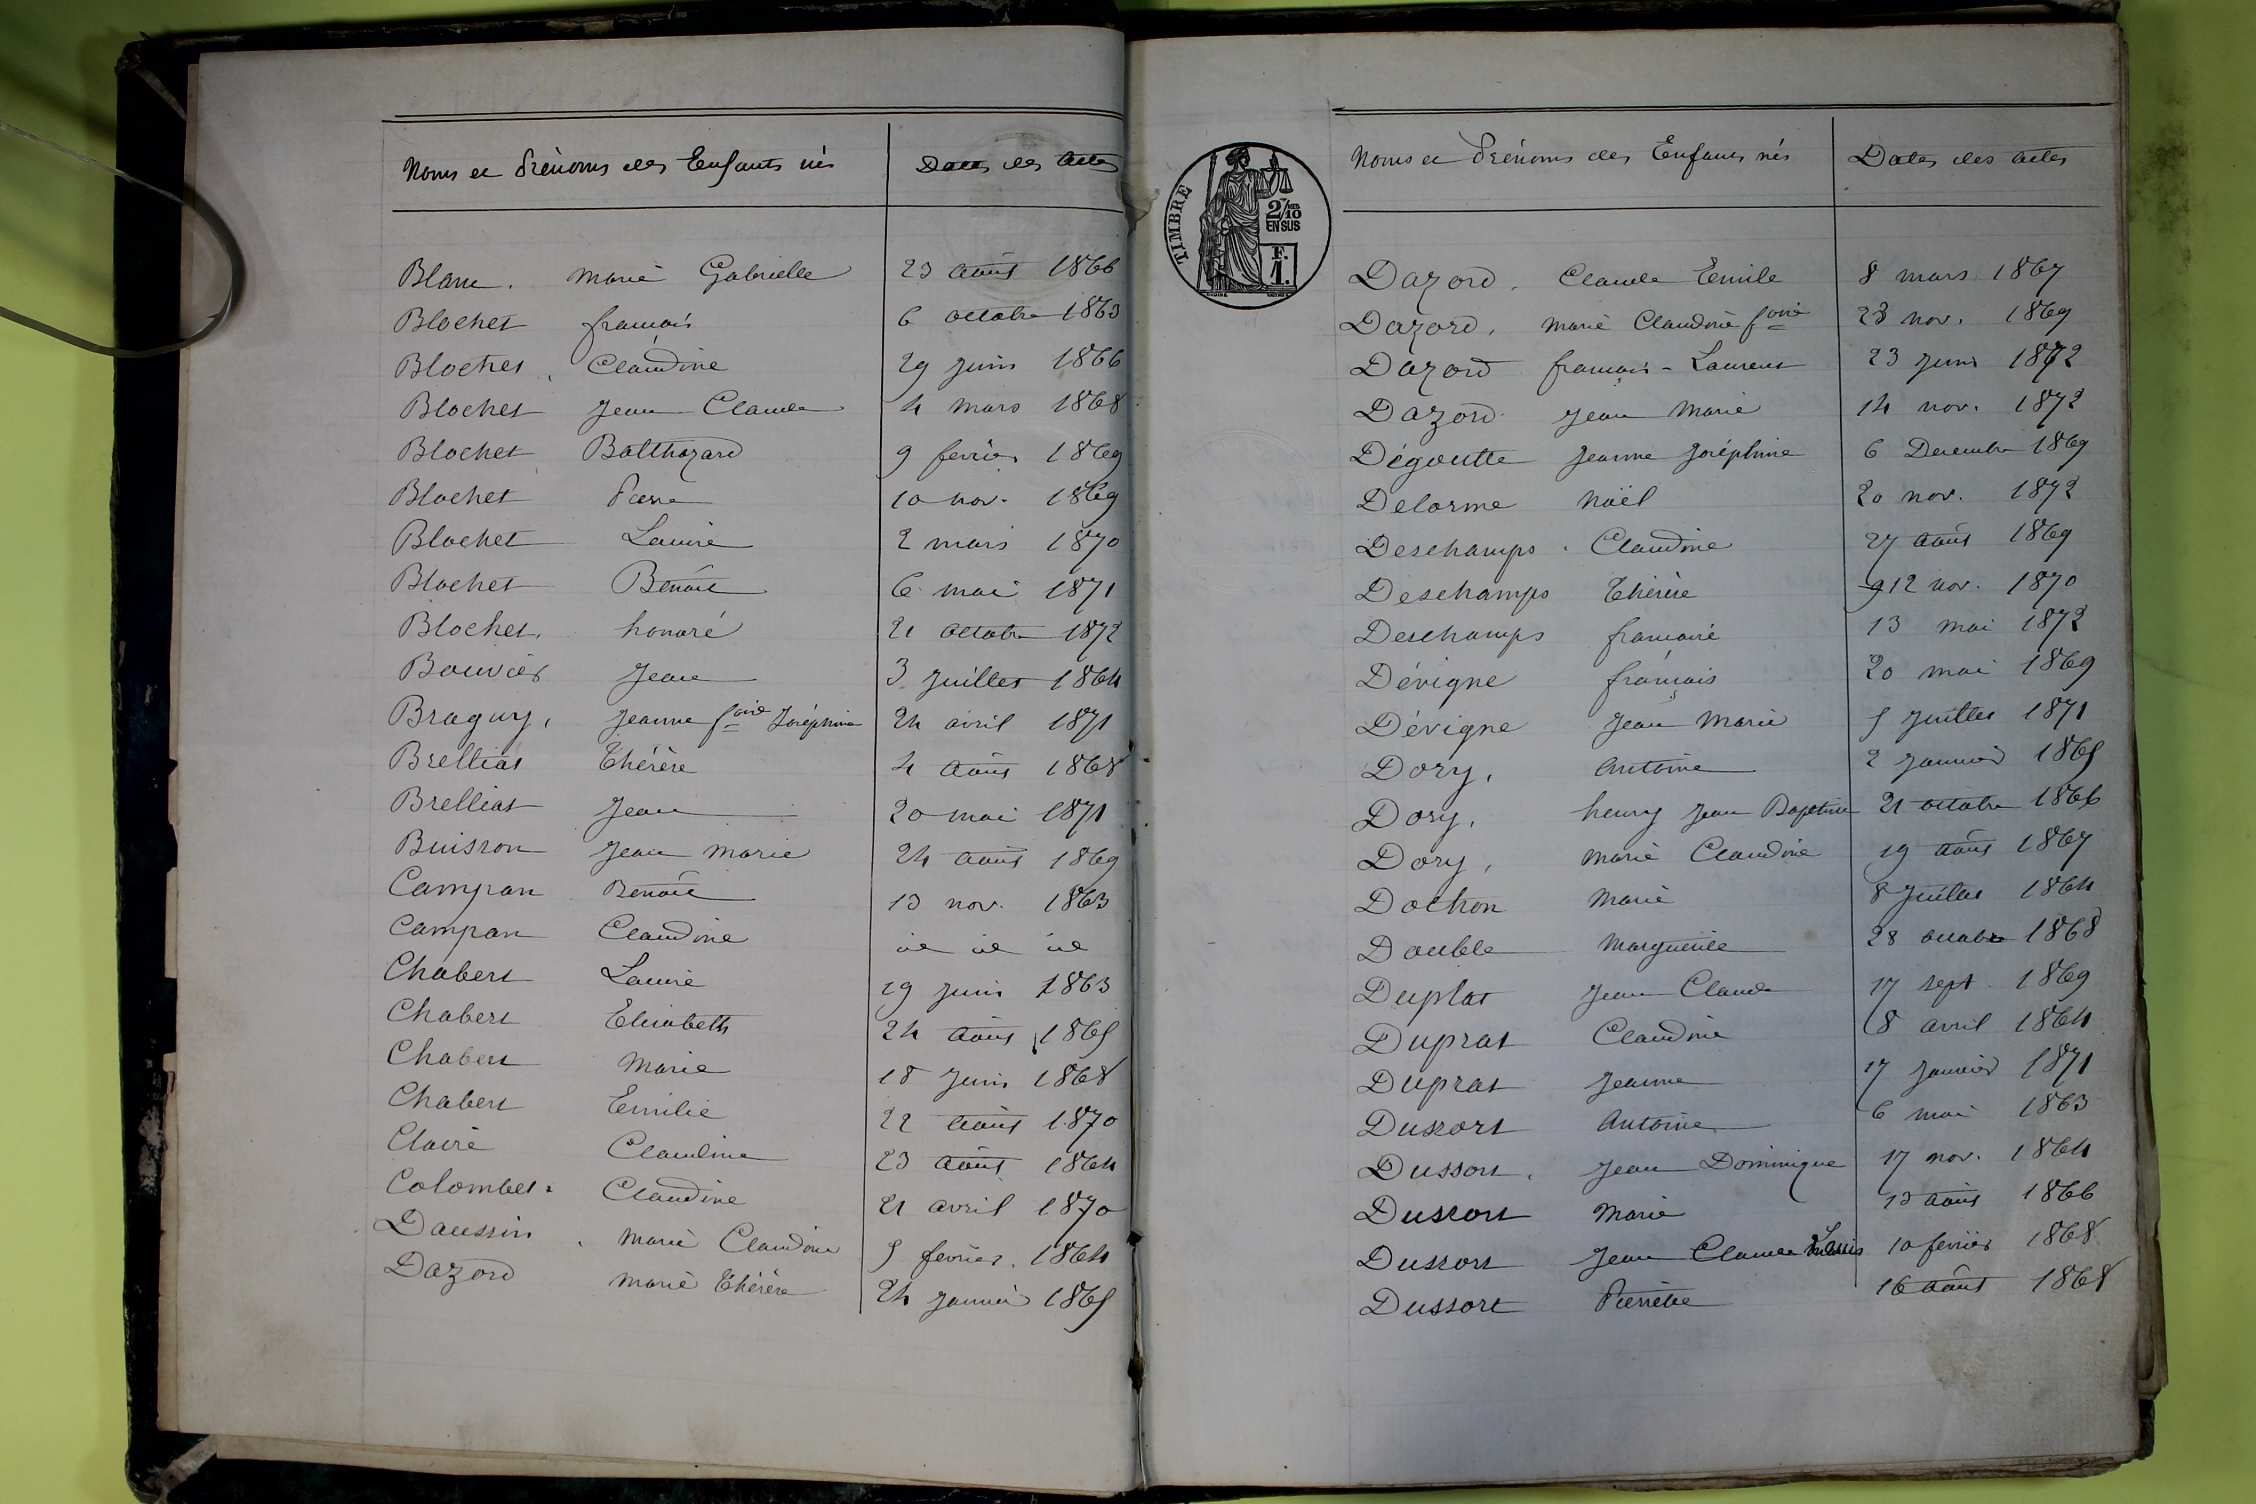 Noms et Prénoms des Enfants nés Dates des Actes
Blanc. Marie Gabrielle 23 août 1866
Blochet françois 6 octobre 1863
Blochet, Claudine 29 juin 1866
Blochet Jean Claude 4 mars 1868
Blochet Balthazard 9 février 1869
Blochet Pierre 10 nov. 1869
Blochet Louise 2 mars 1870
Blochet Benoît 6 mai 1871
Blochet, honoré 21 octobre 1872
Bouvier Jean 3 juillet 1864
Braguy, Jeanne fçoise Joséphine 24 avril 1871
Brelliat Thérèse 4 août 1868
Brelliat Jean 20 mai 1871
Buisson Jean Marie 24 août 1869
Campan Benoît 13 nov. 1863
Campan Claudine id id id
Chabert Louise 19 juin 1863
Chabert Elisabeth 24 août 1865
Chabert Marie 18 juin 1868
Chabert Emilie 22 août 1870
Claire Claudine 23 août 1864
Colombet. Claudine 21 avril 1870
Daussin, Marie Claudine 5 février. 1864
Dazord Marie Thérèse 24 janvier 1865
TIMBRE
2/10 EN SUS
F. 1.
Noms et Prénoms des Enfants nés Dates des actes
Dazord, Claude Emile 8 mars 1867
Dazord, Marie Claudine fçoise 23 nov. 1869
Dazord françois-Laurent 23 juin 1872
Dazord Jean Marie 14 nov. 1872
Dégoutte Jeanne Joséphine 6 Decembre 1869
Delorme Noël 20 nov. 1872
Deschamps. Claudine 27 août 1869
Deschamps Thérèse 12 nov. 1870
Deschamps françoise 13 mai 1872
Dévigne françois 20 mai 1869
Dévigne Jean Marie 5 juillet 1871
Dory, Antoine 2 janvier 1865
Dory, henry Jean Baptiste 21 octobre 1866
Dory, Marie Claudine 19 août 1867
Dochon Marie 8 juillet 1864
Double Marguerite 28 octobre 1868
Duplat Jean Claude 17 sept. 1869
Duprat Claudine 8 avril 1864
Duprat Jeanne 17 janvier 1871
Dussort Antoine 6 mai 1863
Dussort, Jean Dominique 17 nov. 1864
Dussort Marie 13 août 1866
Dussort Jean Claude Louis 10 février 1868
Dussort Pierrette 16 août 1868